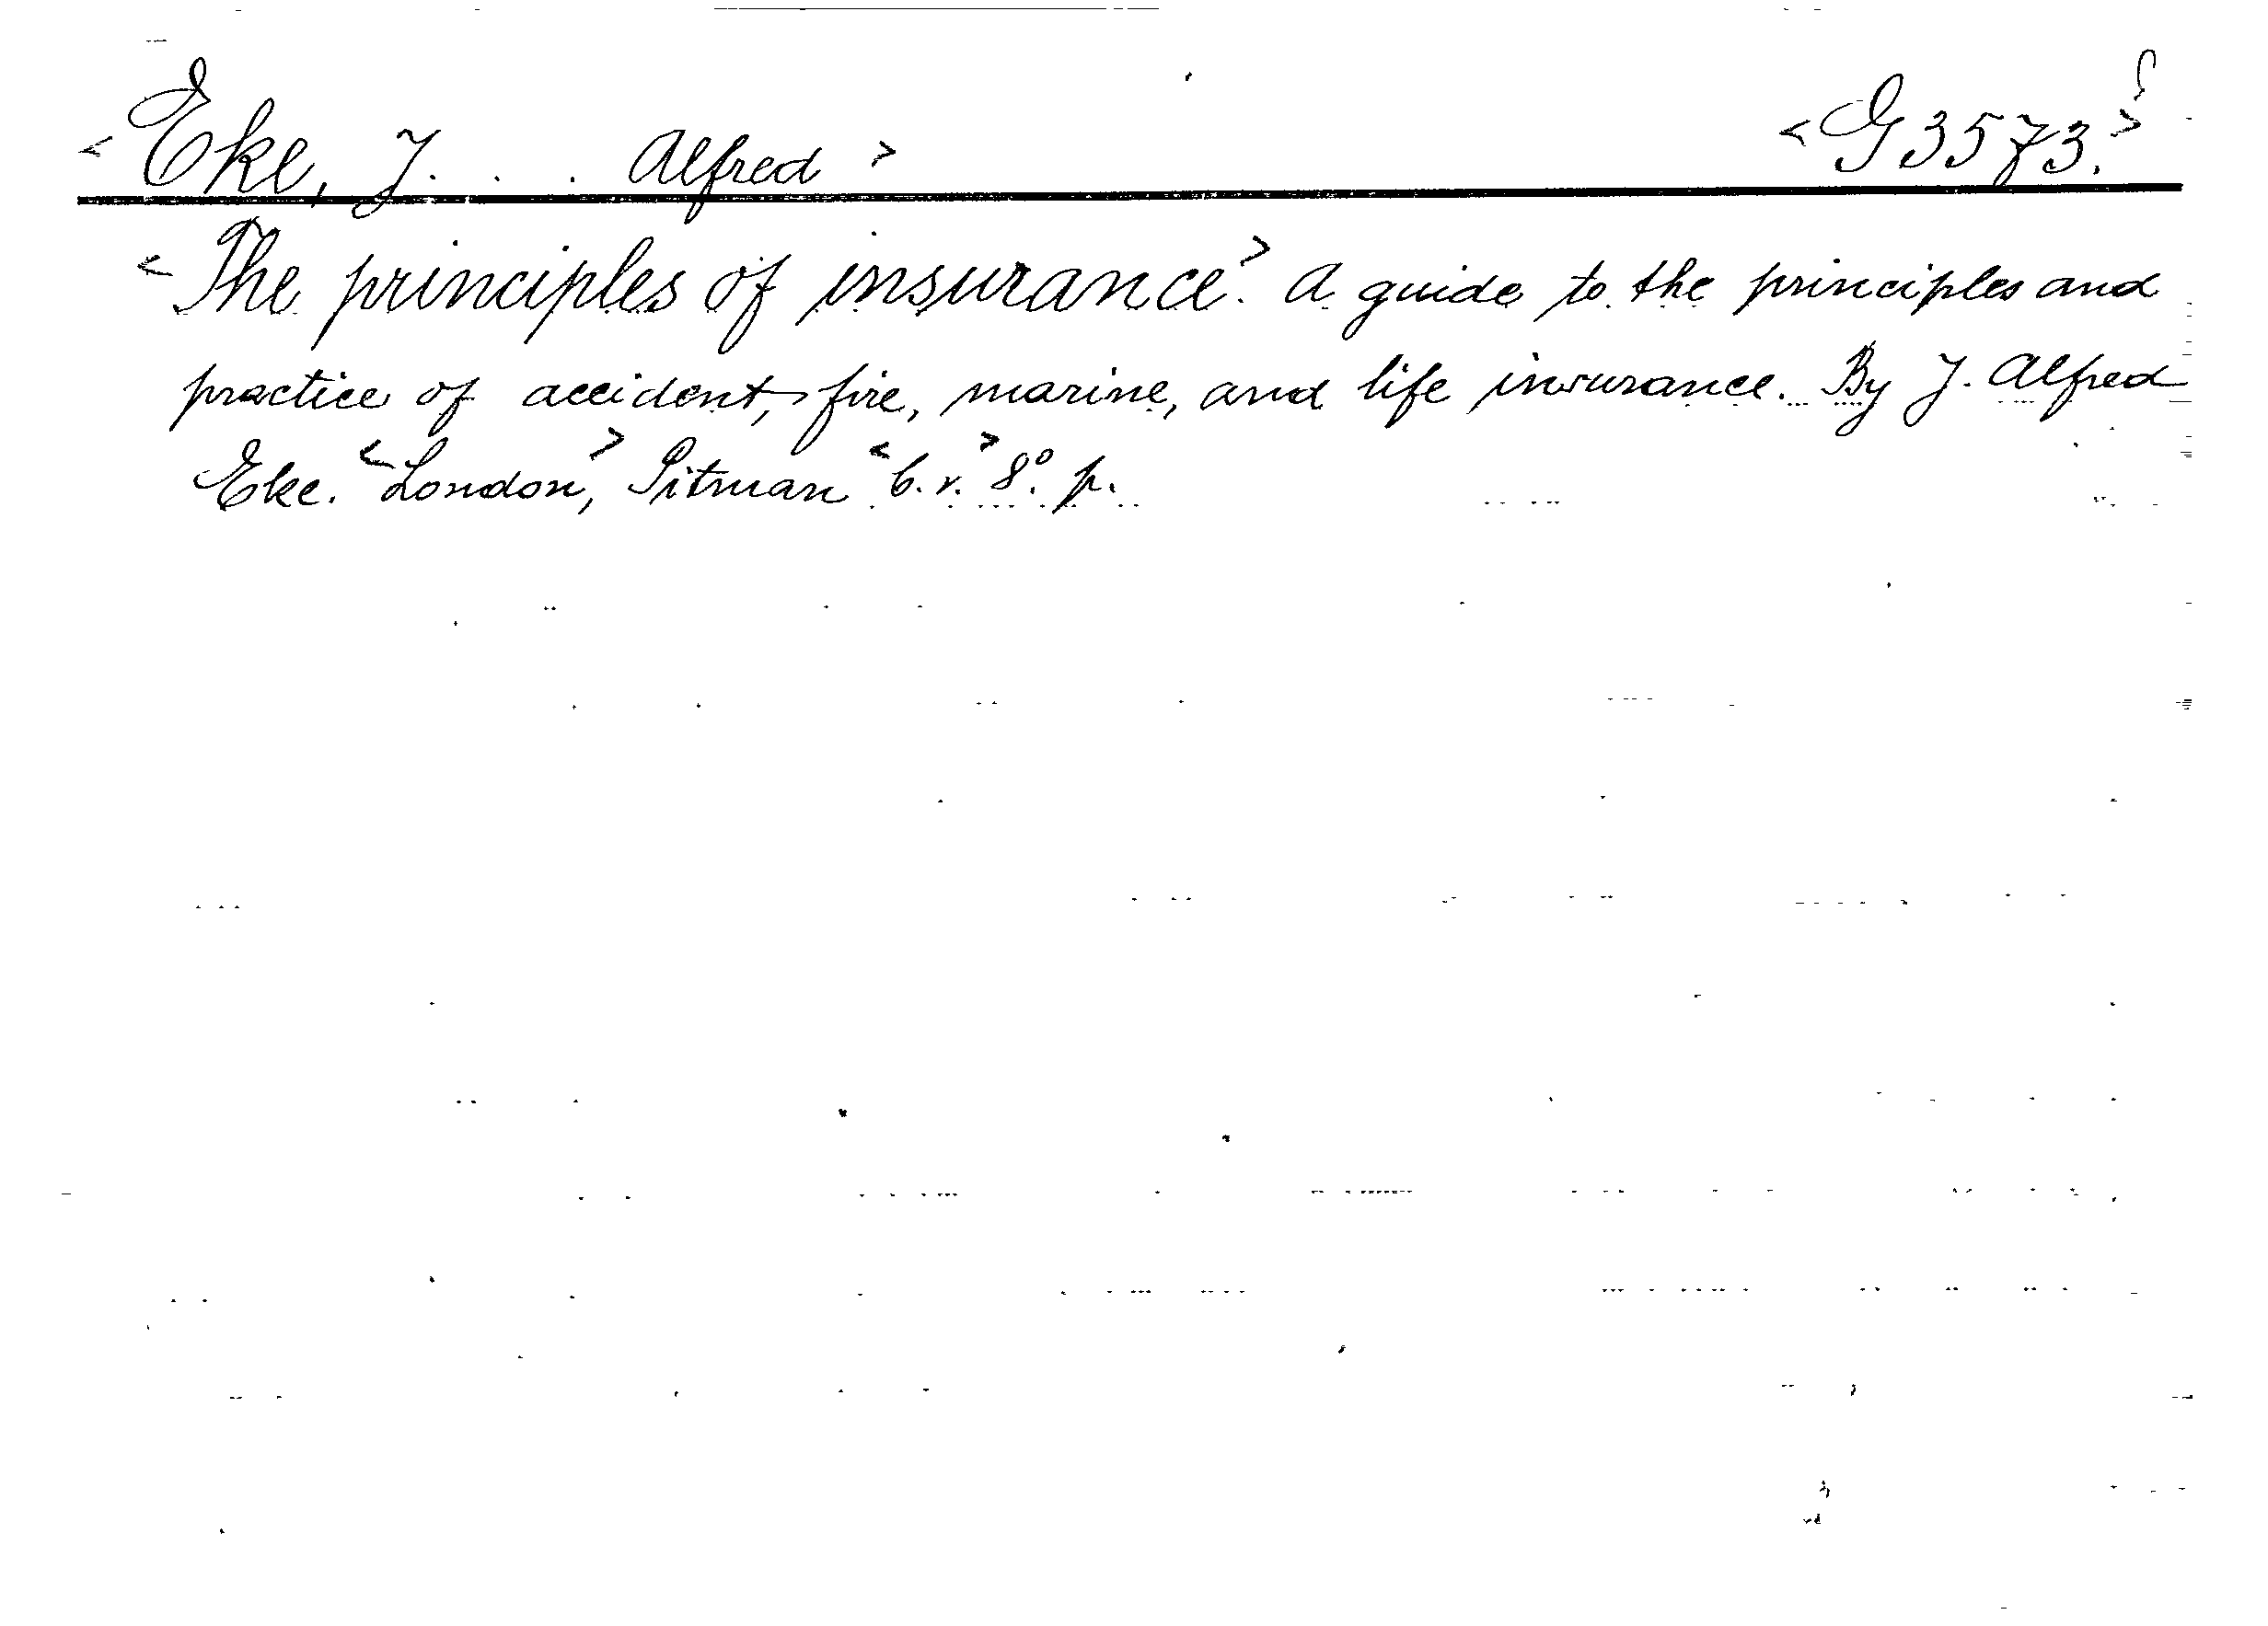 <Eke, J. . . Alfred> <G 3573.>
<The principles of insurance>. A guide to the principles and
practice of accident, fire, marine, and life insurance. By J. Alfred
Eke. <London>, Pitman <b. r.> 8°. p.